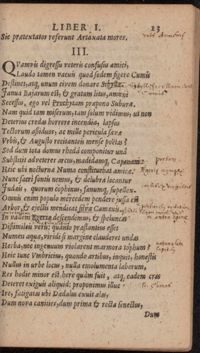 LIBER I. 23
Sic prætextatos referunt Artaxata mores.
III.
QVamvis digressu veteris confusus amici,
Laudo tamen vacuis quod sedem figere Cumis
Destinet, atq; unum civem donare Sibyllæ.
Janua Bajarum est, & gratum littus, amœni
Secessus, ego vel Prochytam præpono Suburæ.
Nam quid tam miserum, tam solum vidimus, ut non
Deterius credas horrere incendia, lapsus
Tectorum assiduos, ac mille pericula sævæ
Urbis, & Augusto recitantes mense poëtas?
Sed dum tota domus rheda componitur una
Substitit ad veteres arcus, madidamq; Capenam
Hic ubi nocturnæ Numa constituebat amicæ
Nunc sacri fontis nemus, & delubra locantur
Judæis, quorum cophinus, fœnumq; supellex.
Omnis enim populo mercedem pendere jussa est
Arbor, & ejectis mendicat silva Camœnis.
In vallem Egeriæ descendimus, & speluncas
Dissimiles veris: quanto præstantius esset
Numen aquæ, viridi si margine clauderet undas
Herba, nec ingenuum violarent marmora tophum?
Hic tunc Umbricius, quando artibus, inquit, honestis
Nullus in urbe locus, nulla emolumenta laborum,
Res hodie minor est here quàm fuit, atq; eadem cras
Deteret exiguis aliquid: proponimus illuc
Ire, fatigatas ubi Dædalus exuit alas,
Dum nova canities, dum prima & recta senectus,
Dum